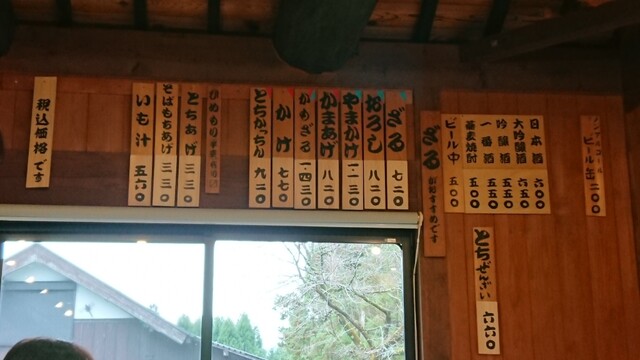 ノンアルコール
ビール缶 二〇〇
日本酒 六〇〇
大吟醸酒 六五〇
吟醸酒 五五〇
一番酒 五五〇
蕎麦焼酎 五〇〇
ビール中 五〇〇
とちぜんざい 六六〇
ざる がおすすめです
ざる 七二〇
おろし 八二〇
やまかけ 一・一三〇
かまあげ 八二〇
かめざる 一・四三〇
かけ 七七〇
とちかっちん 九二〇
とちあげ 三三〇
そばもちあげ 三三〇
いも汁 五六〇
税込価格です